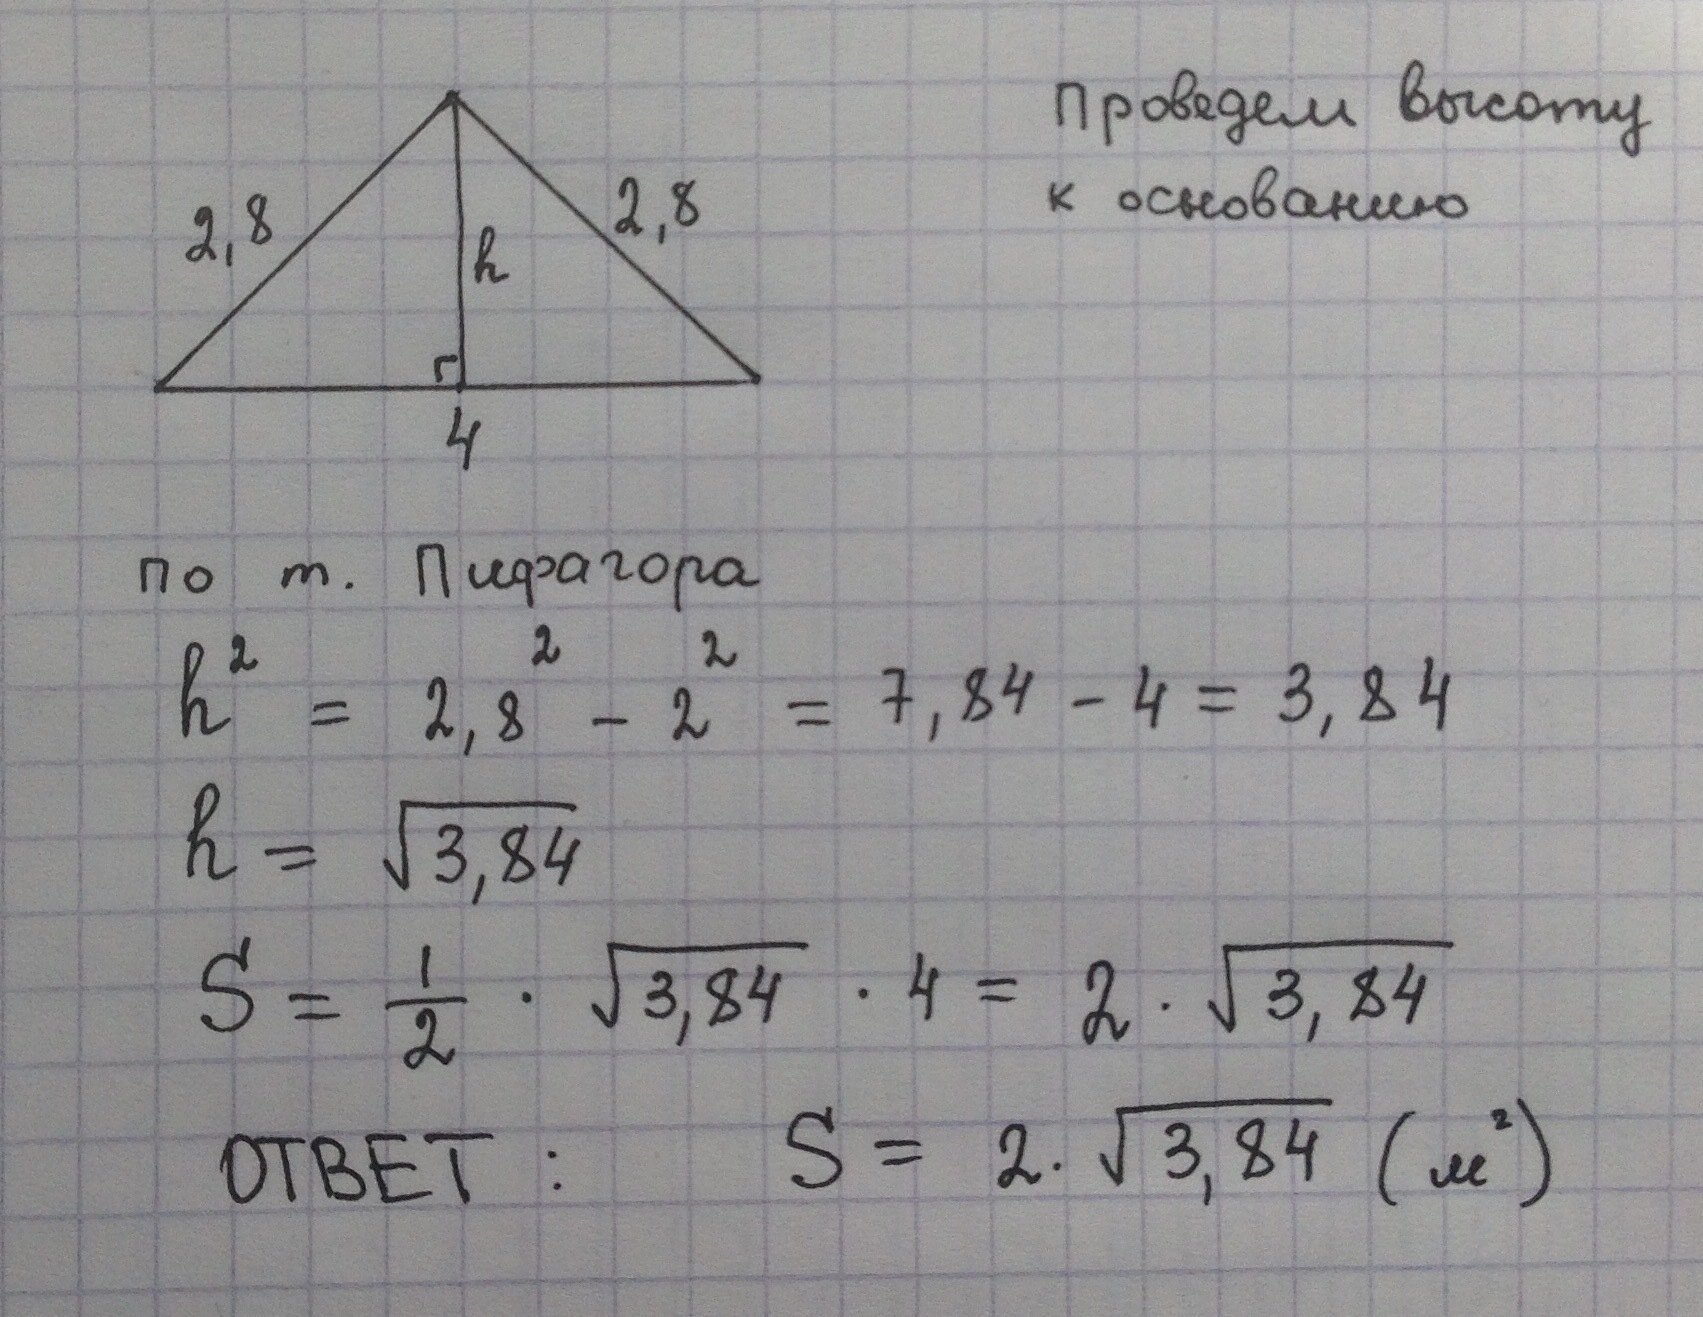 Проведем высоту
к основанию
2,8
2,8
h
4
по т. Пифагора
h² = 2,8² - 2² = 7,84 - 4 = 3,84
h = √3,84
S = 1/2 · √3,84 · 4 = 2 · √3,84
ОТВЕТ: S = 2 · √3,84 (м²)